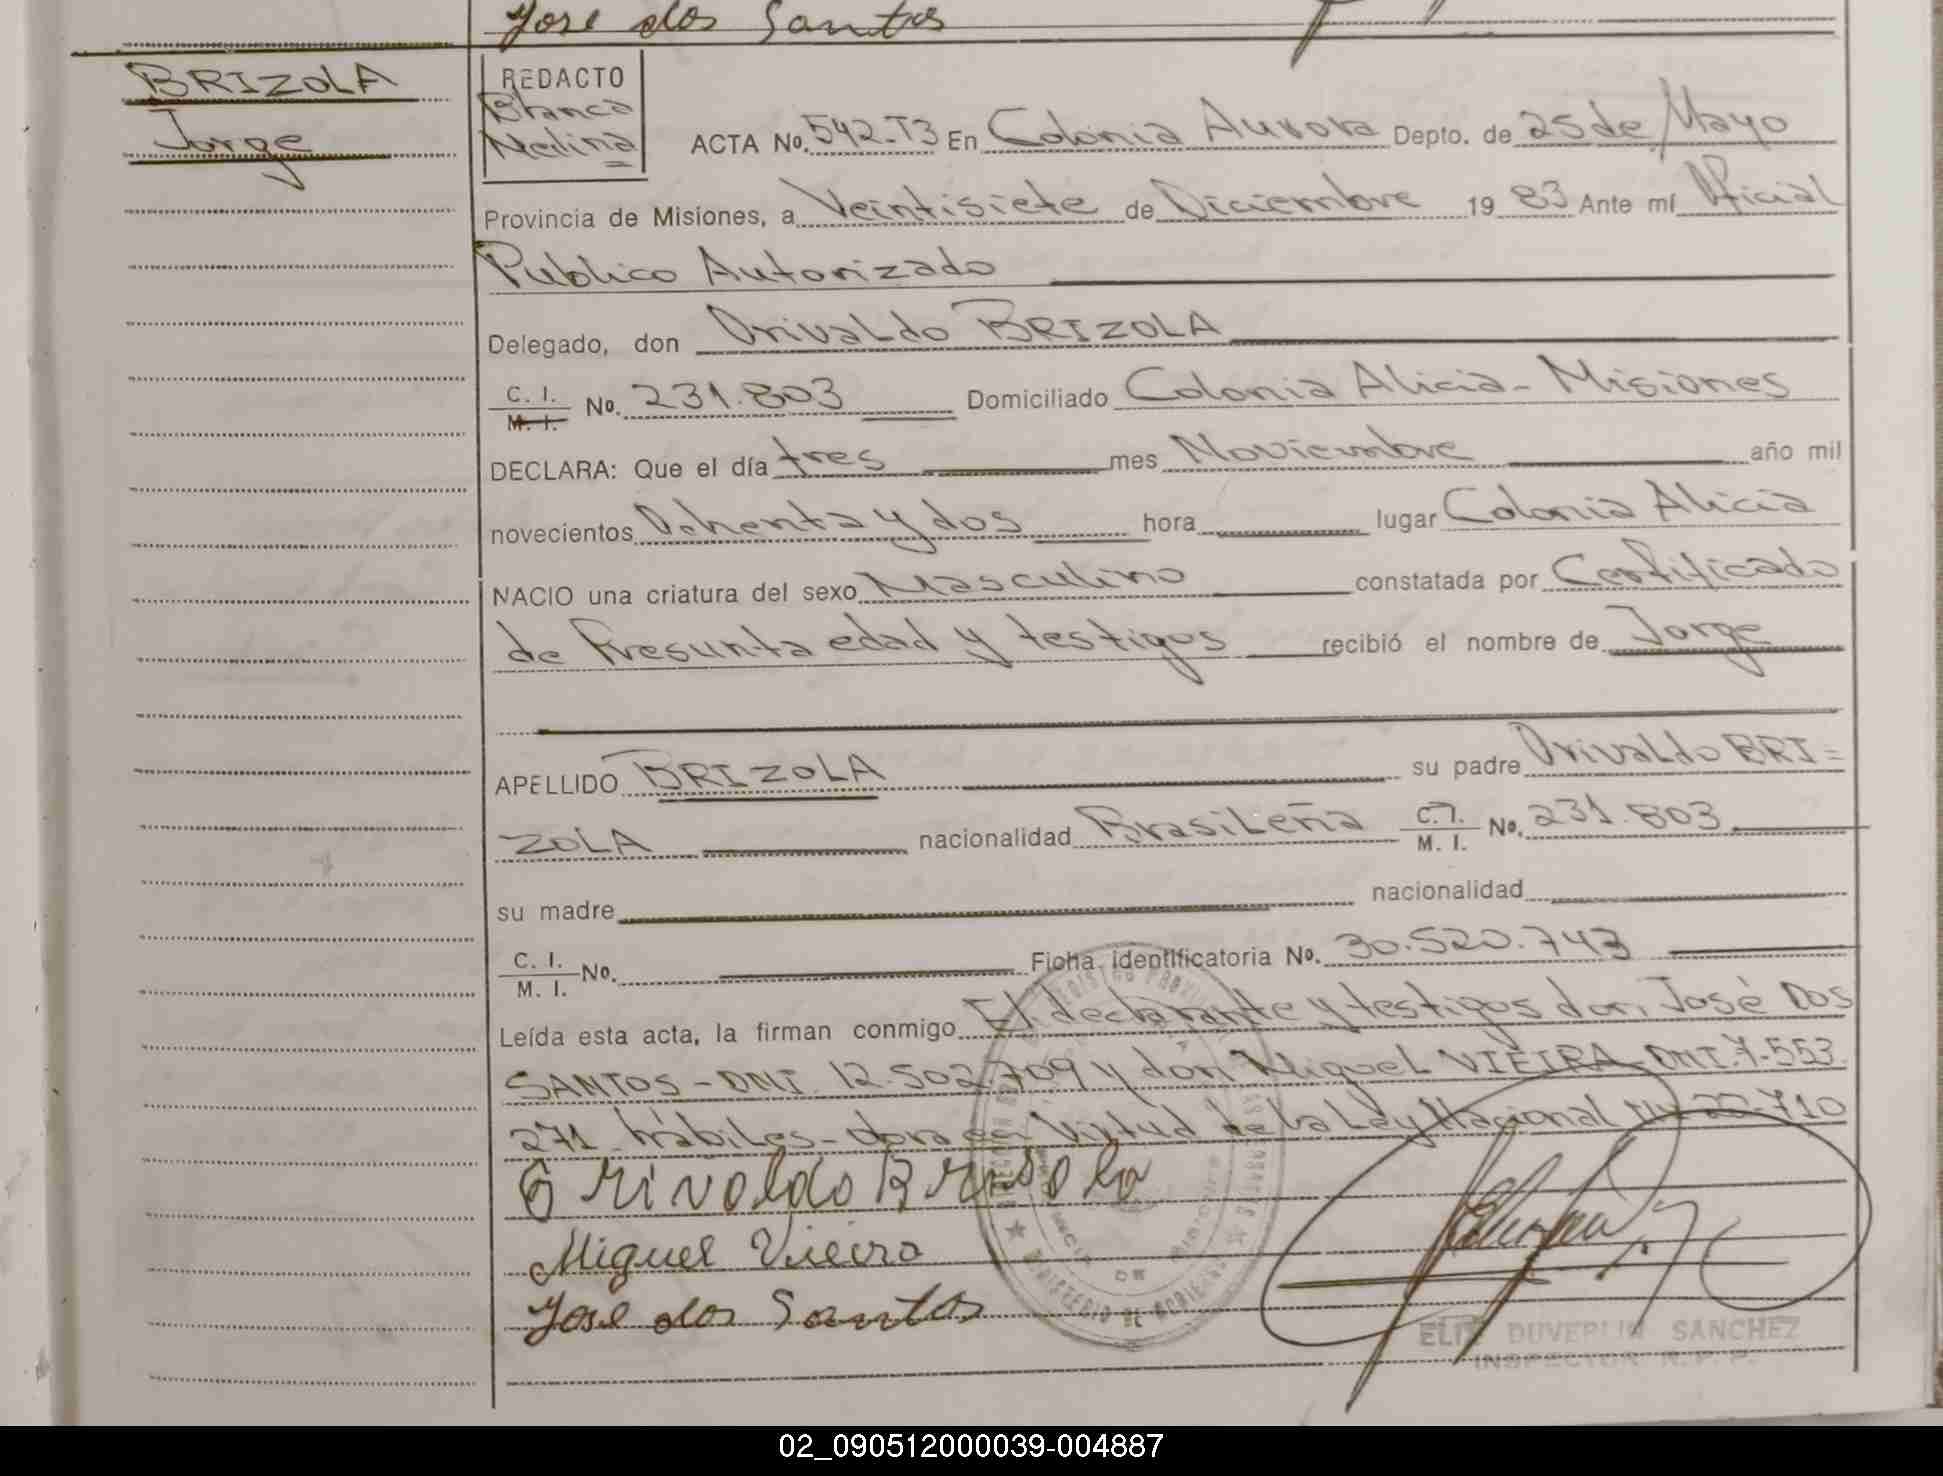 Jose dos Santos
BRIZOLA
Jorge
REDACTO
Blanca
Medina
ACTA No. 542-T3 En Colonia Aurora Depto. de 25 de Mayo
Provincia de Misiones, a Veintisiete de Diciembre 19 83 Ante mí Oficial
Publico Autorizado
Delegado, don Orivaldo BRIZOLA
C. I.
M. I. No. 231.803 Domiciliado Colonia Alicia - Misiones
DECLARA: Que el día tres mes Noviembre año mil
novecientos Ochenta y dos hora lugar Colonia Alicia
NACIO una criatura del sexo Masculino constatada por Certificado
de Presunta edad y testigos recibió el nombre de Jorge
APELLIDO BRIZOLA su padre Orivaldo BRI=
ZOLA nacionalidad Brasileña C.I. M. I. No. 231.803
su madre nacionalidad
C. I.
M. I. No. Ficha identificatoria No. 30.520.743
Leída esta acta, la firman conmigo El declarante y testigos don José DOS
SANTOS - DNI. 12.502.709 y don Miguel VIEIRA DNI. 7.553.
271 hábiles - obra en Virtud de la Ley Nacional Nº 22.710
Orivaldo Brisola
Miguel Vieira
Jose dos Santos
MINISTERIO DE GOBIERNO
DE MISIONES
DUVERLIN SANCHEZ
INSPECTOR R. P. P.
02_090512000039-004887